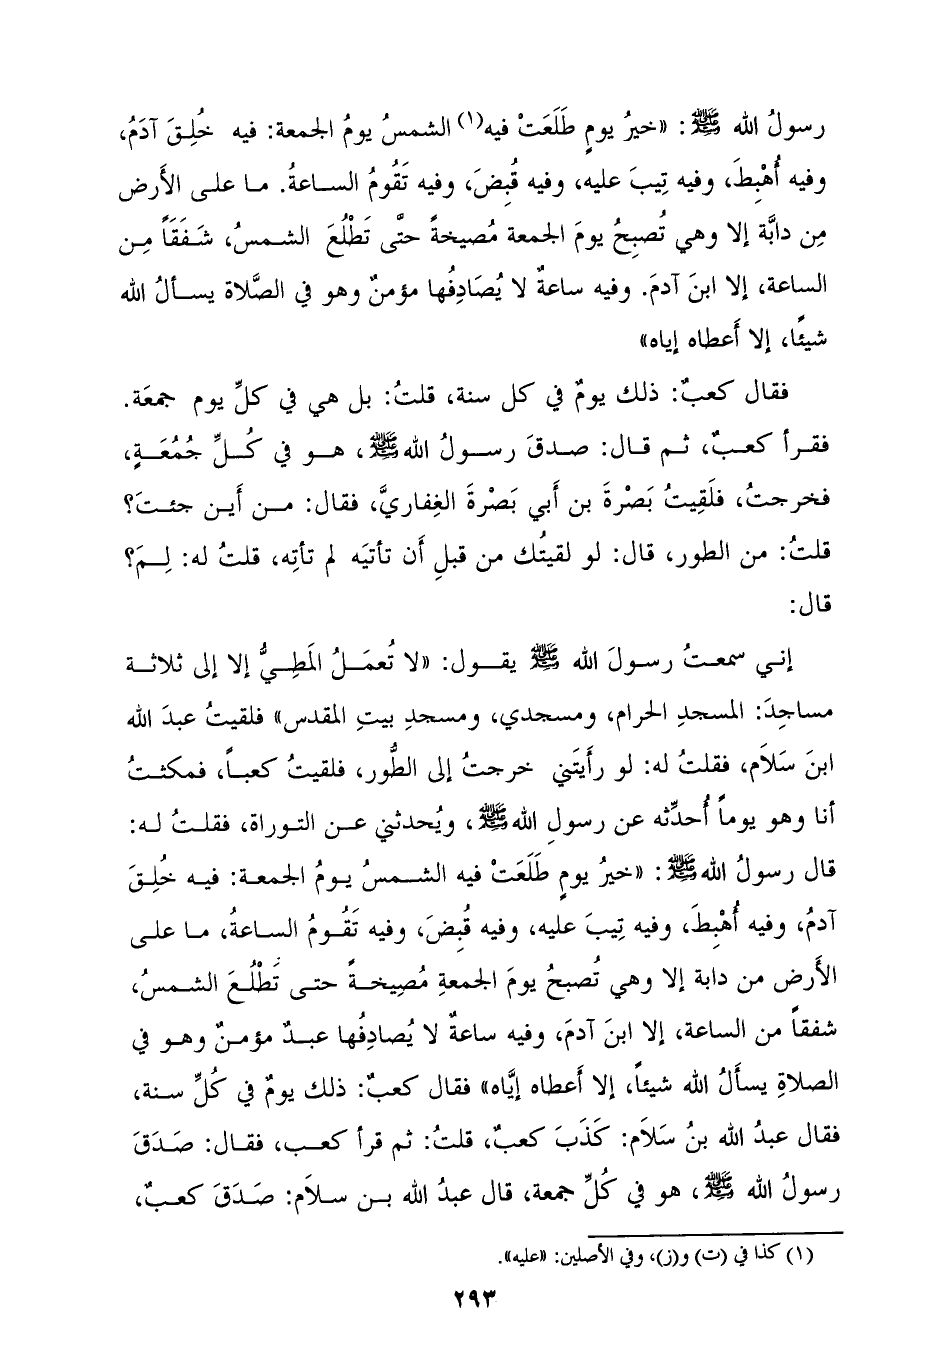 رسولُ الله ﷺ: «خيرُ يومٍ طَلَعَتْ فيه(١) الشمسُ يومُ الجمعة: فيه خُلِقَ آدَمُ،
وفيه أُهْبِطَ، وفيه تِيبَ عليه، وفيه قُبِضَ، وفيه تَقُومُ الساعةُ. ما على الأرض
مِن دابَّة إلا وهي تُصبِحُ يومَ الجمعة مُصيخةً حتَّى تَطْلُعَ الشمسُ، شَفَقَاً مِن
الساعة، إلا ابنَ آدمَ. وفيه ساعةٌ لا يُصَادِفُها مؤمنٌ وهو في الصَّلاة يسألُ الله
شيئًا، إلا أَعطاه إياه»
فقال كعبٌ: ذلك يومٌ في كل سنة، قلتُ: بل هي في كلِّ يوم جمعَة.
فقرأ كعبٌ، ثم قال: صدقَ رسولُ الله ﷺ، هو في كُلِّ جُمُعَةٍ،
فخرجتُ، فلَقِيتُ بَصْرةَ بن أبي بَصْرةَ الغِفاريَّ، فقال: من أَين جئتَ؟
قلتُ: من الطور، قال: لو لقيتُك من قبلِ أَن تأتيَه لم تأتِه، قلتُ له: لِمَ؟
قال:
إني سمعتُ رسولَ الله ﷺ يقول: «لا تُعمَلُ المَطِيُّ إلا إلى ثلاثة
مساجِدَ: المسجدِ الحرام، ومسجدي، ومسجدِ بيتِ المقدس» فلقيتُ عبدَ الله
ابنَ سَلاَم، فقلتُ له: لو رأَيتَني خرجتُ إلى الطُّور، فلقيتُ كعباً، فمكثتُ
أنا وهو يوماً أُحدِّثه عن رسولِ الله ﷺ، ويُحدثني عن التوراة، فقلتُ له:
قال رسولُ الله ﷺ: «خيرُ يومٍ طَلَعَتْ فيه الشمسُ يومُ الجمعة: فيه خُلِقَ
آدمُ، وفيه أُهْبِطَ، وفيه تِيبَ عليه، وفيه قُبِضَ، وفيه تَقُومُ الساعةُ، ما على
الأَرض من دابة إلا وهي تُصبحُ يومَ الجمعةِ مُصِيخةً حتى تَطْلُعَ الشمسُ،
شفقاً من الساعة، إلا ابنَ آدمَ، وفيه ساعةٌ لا يُصادِفُها عبدٌ مؤمنٌ وهو في
الصلاةِ يسأَلُ الله شيئاً، إلا أَعطاه إيَّاه» فقال كعبٌ: ذلك يومٌ في كُلِّ سنة،
فقال عبدُ الله بنُ سَلاَم: كَذَبَ كعبٌ، قلتُ: ثم قرأ كعب، فقال: صَدَقَ
رسولُ الله ﷺ، هو في كُلِّ جمعة، قال عبدُ الله بن سلاَم: صَدَقَ كعبٌ،
(١) كذا في (ت) و(ز)، وفي الأصلين: «عليه».
٢٩٣